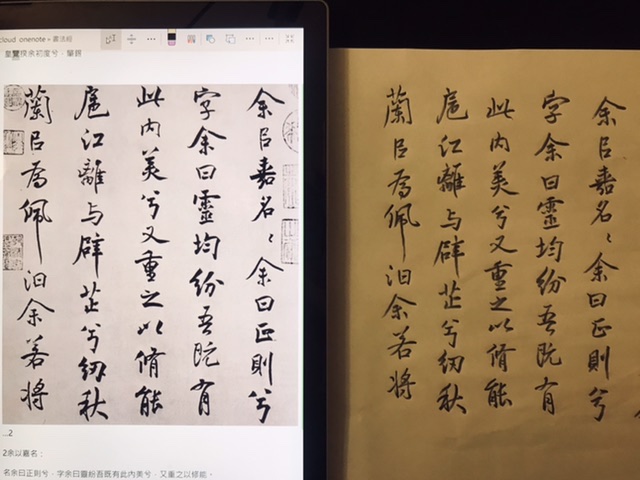 cloud onenote » 書法經
皇覽揆余初度兮，肇錫
余㠯嘉名〻余曰正則兮
字余曰靈均紛吾既有
此内美兮又重之以脩能
扈江離与辟芷兮紉秋
蘭㠯為佩汨余若將
...2
2余以嘉名：
名余曰正則兮，字余曰靈紛吾既有此內美兮，又重之以修能。
余㠯嘉名〻余曰正則兮
字余曰靈均紛吾既有
此内美兮又重之以脩能
扈江離与辟芷兮紉秋
蘭㠯為佩汨余若將